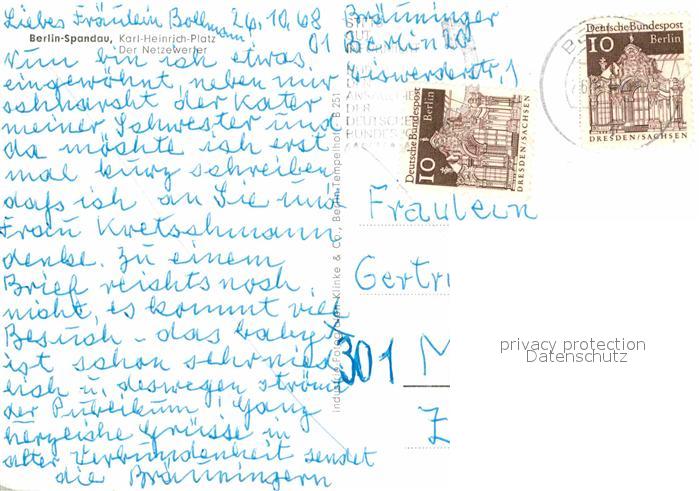 Liebes Fräulein Bollmann! 26.10.68
Berlin-Spandau, Karl-Heinrich-Platz
Der Netzewerfer
Nun bin ich etwas
eingewöhnt, neben mir
schnarcht der Kater
meiner Schwester und
da möchte ich erst
mal kurz schreiben
daß ich an Sie und
Frau Kretschmann
denke. Zu einem
Brief reichts noch
nicht, es kommt viel
Besuch - das Baby
ist schon sehr nied-
lich u. deswegen strömt
der Publikum! Ganz
herzliche Grüsse in
alter Verbundenheit sendet
die Bräuningern
Bräuninger
01 Berlin 20
str. 1
DER
DEUTSCHEN
BUNDES
Deutsche Bundespost
Berlin
10
DRESDEN/SACHSEN
Deutsche Bundespost
Berlin
10
DRESDEN/SACHSEN
Klinke & Co., Berlin-Tempelhof
Fräulein
Gertr
301 M
Z
privacy protection
Datenschutz